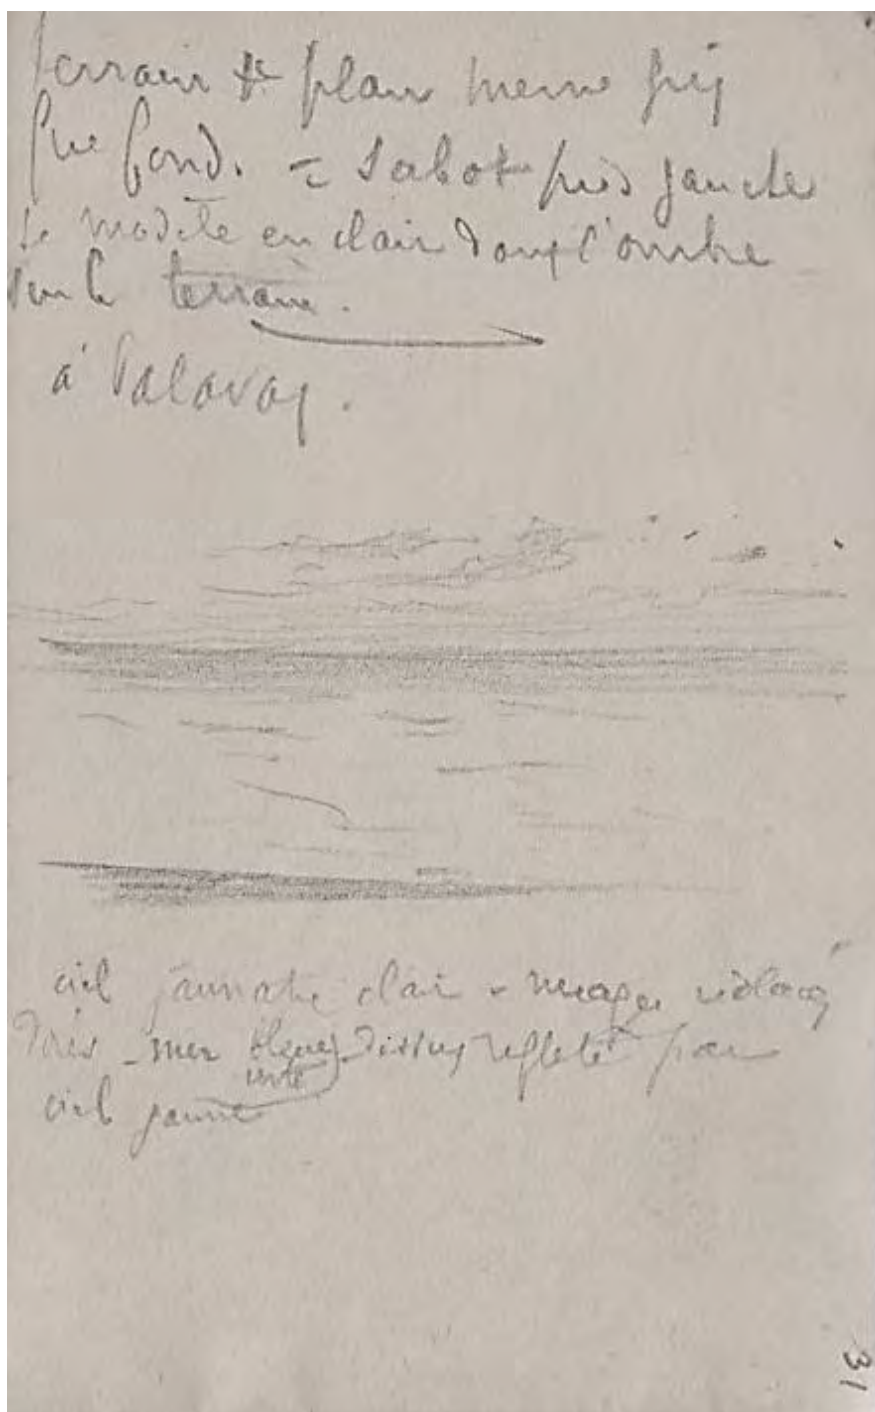 terrain 1er plan meme gris
que fond. = sabot pied gauche
se modèle en clair dans l'ombre
sur le terrain.
à Palavas.
ciel jaunatre clair - nuages violacés
dorés - mer bleue dessus reflété par
verte
ciel jaune
31